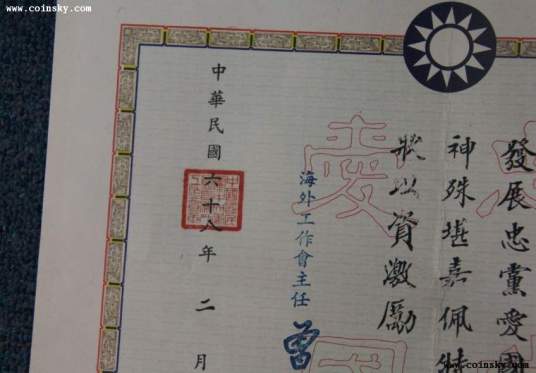 www.coinsky.com
www.coinsky.com
發展忠黨愛國
神殊堪嘉佩特
狀以資激勵
海外工作會主任 曾
中華民國六十八年二月
愛
國
www.coinsky.com